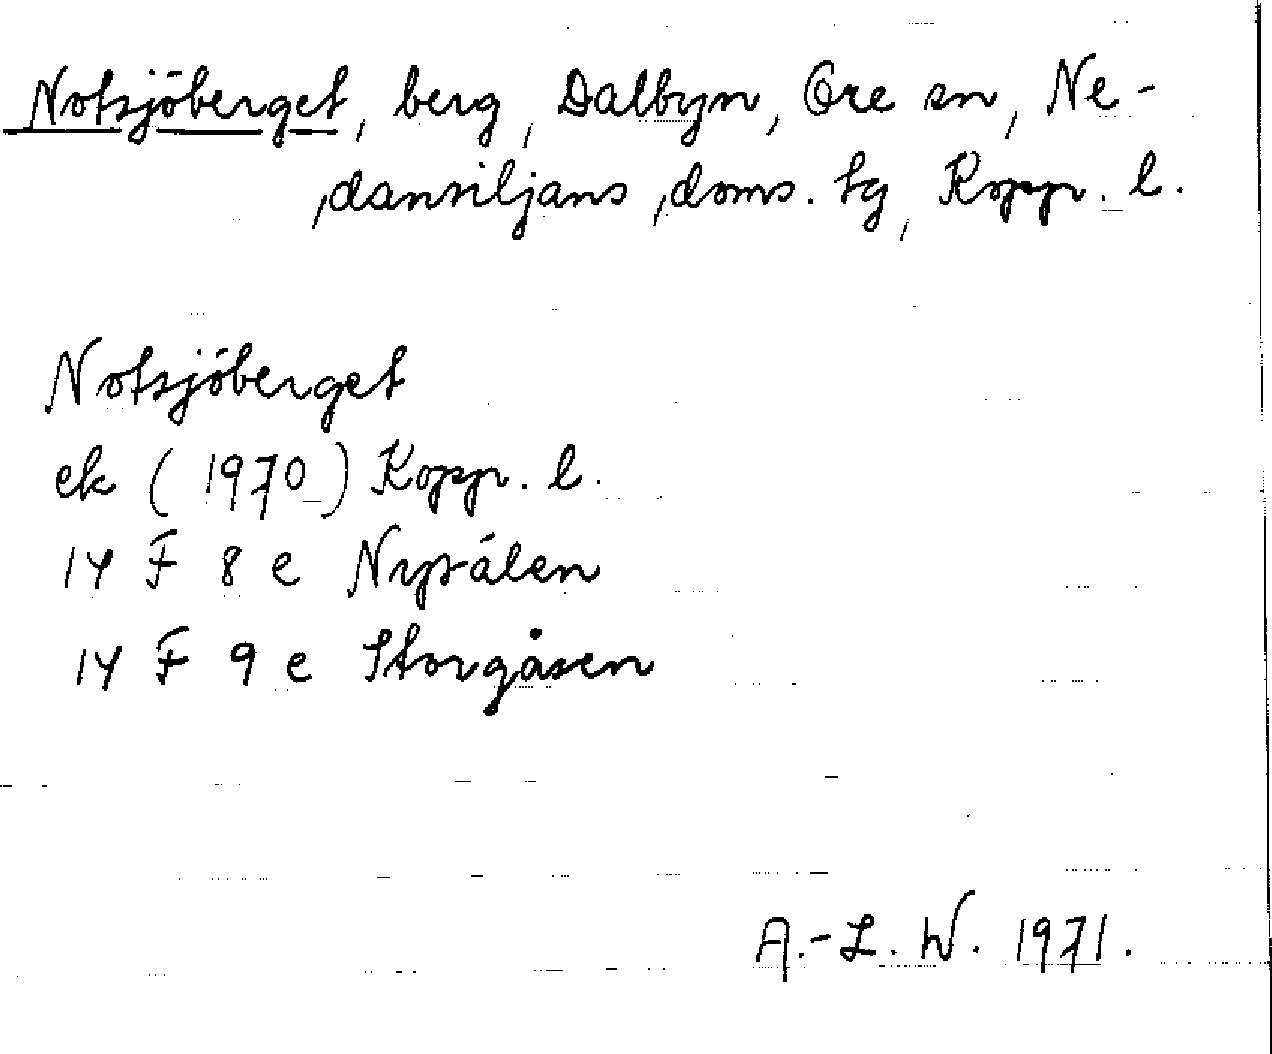 Notsjöberget, berg, Dalbyn, Ore sn, Ne-
dansiljans doms. tg, Kopp. l.
Notsjöberget
ek (1970) Kopp. l.
14 F 8 e
14 F 9 e Storgåsen
A.-L. W. 1971.